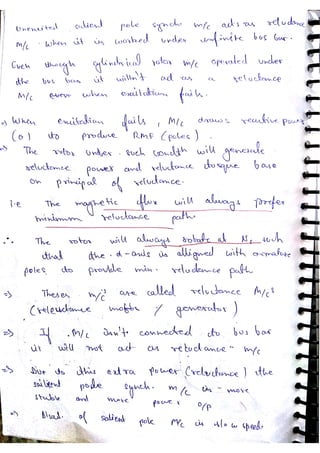 Unexcited salient pole synch m/c acts as reluctance
m/c. when it is worked under infinite bus bar.
Even though cylindrical rotor m/c operated under
the bus bar it willn't act as a reluctance
m/c even when excitation fails.
⇒ When excitation fails, M/c draws reactive power
(Q) to produce RMF (poles).
⇒ The rotor under such condth will generate
reluctance power and reluctance torque base
on principal of reluctance.
i.e The magnetic flux will always prefer
minimum reluctance path.
∴ The rotor will always rotate at Ns such
that the d-axis is alligned with armature
poles to provide min. reluctance path
⇒ These m/c's are called reluctance M/c's
(reluctance motor / generator)
⇒ If M/c isn't connected to bus bar
it will not act as reluctance m/c
⇒ Due to this extra power (reluctance) the
salient pole synch. m/c is more
stable and more power o/p
⇒ of salient pole M/c is slow speed.